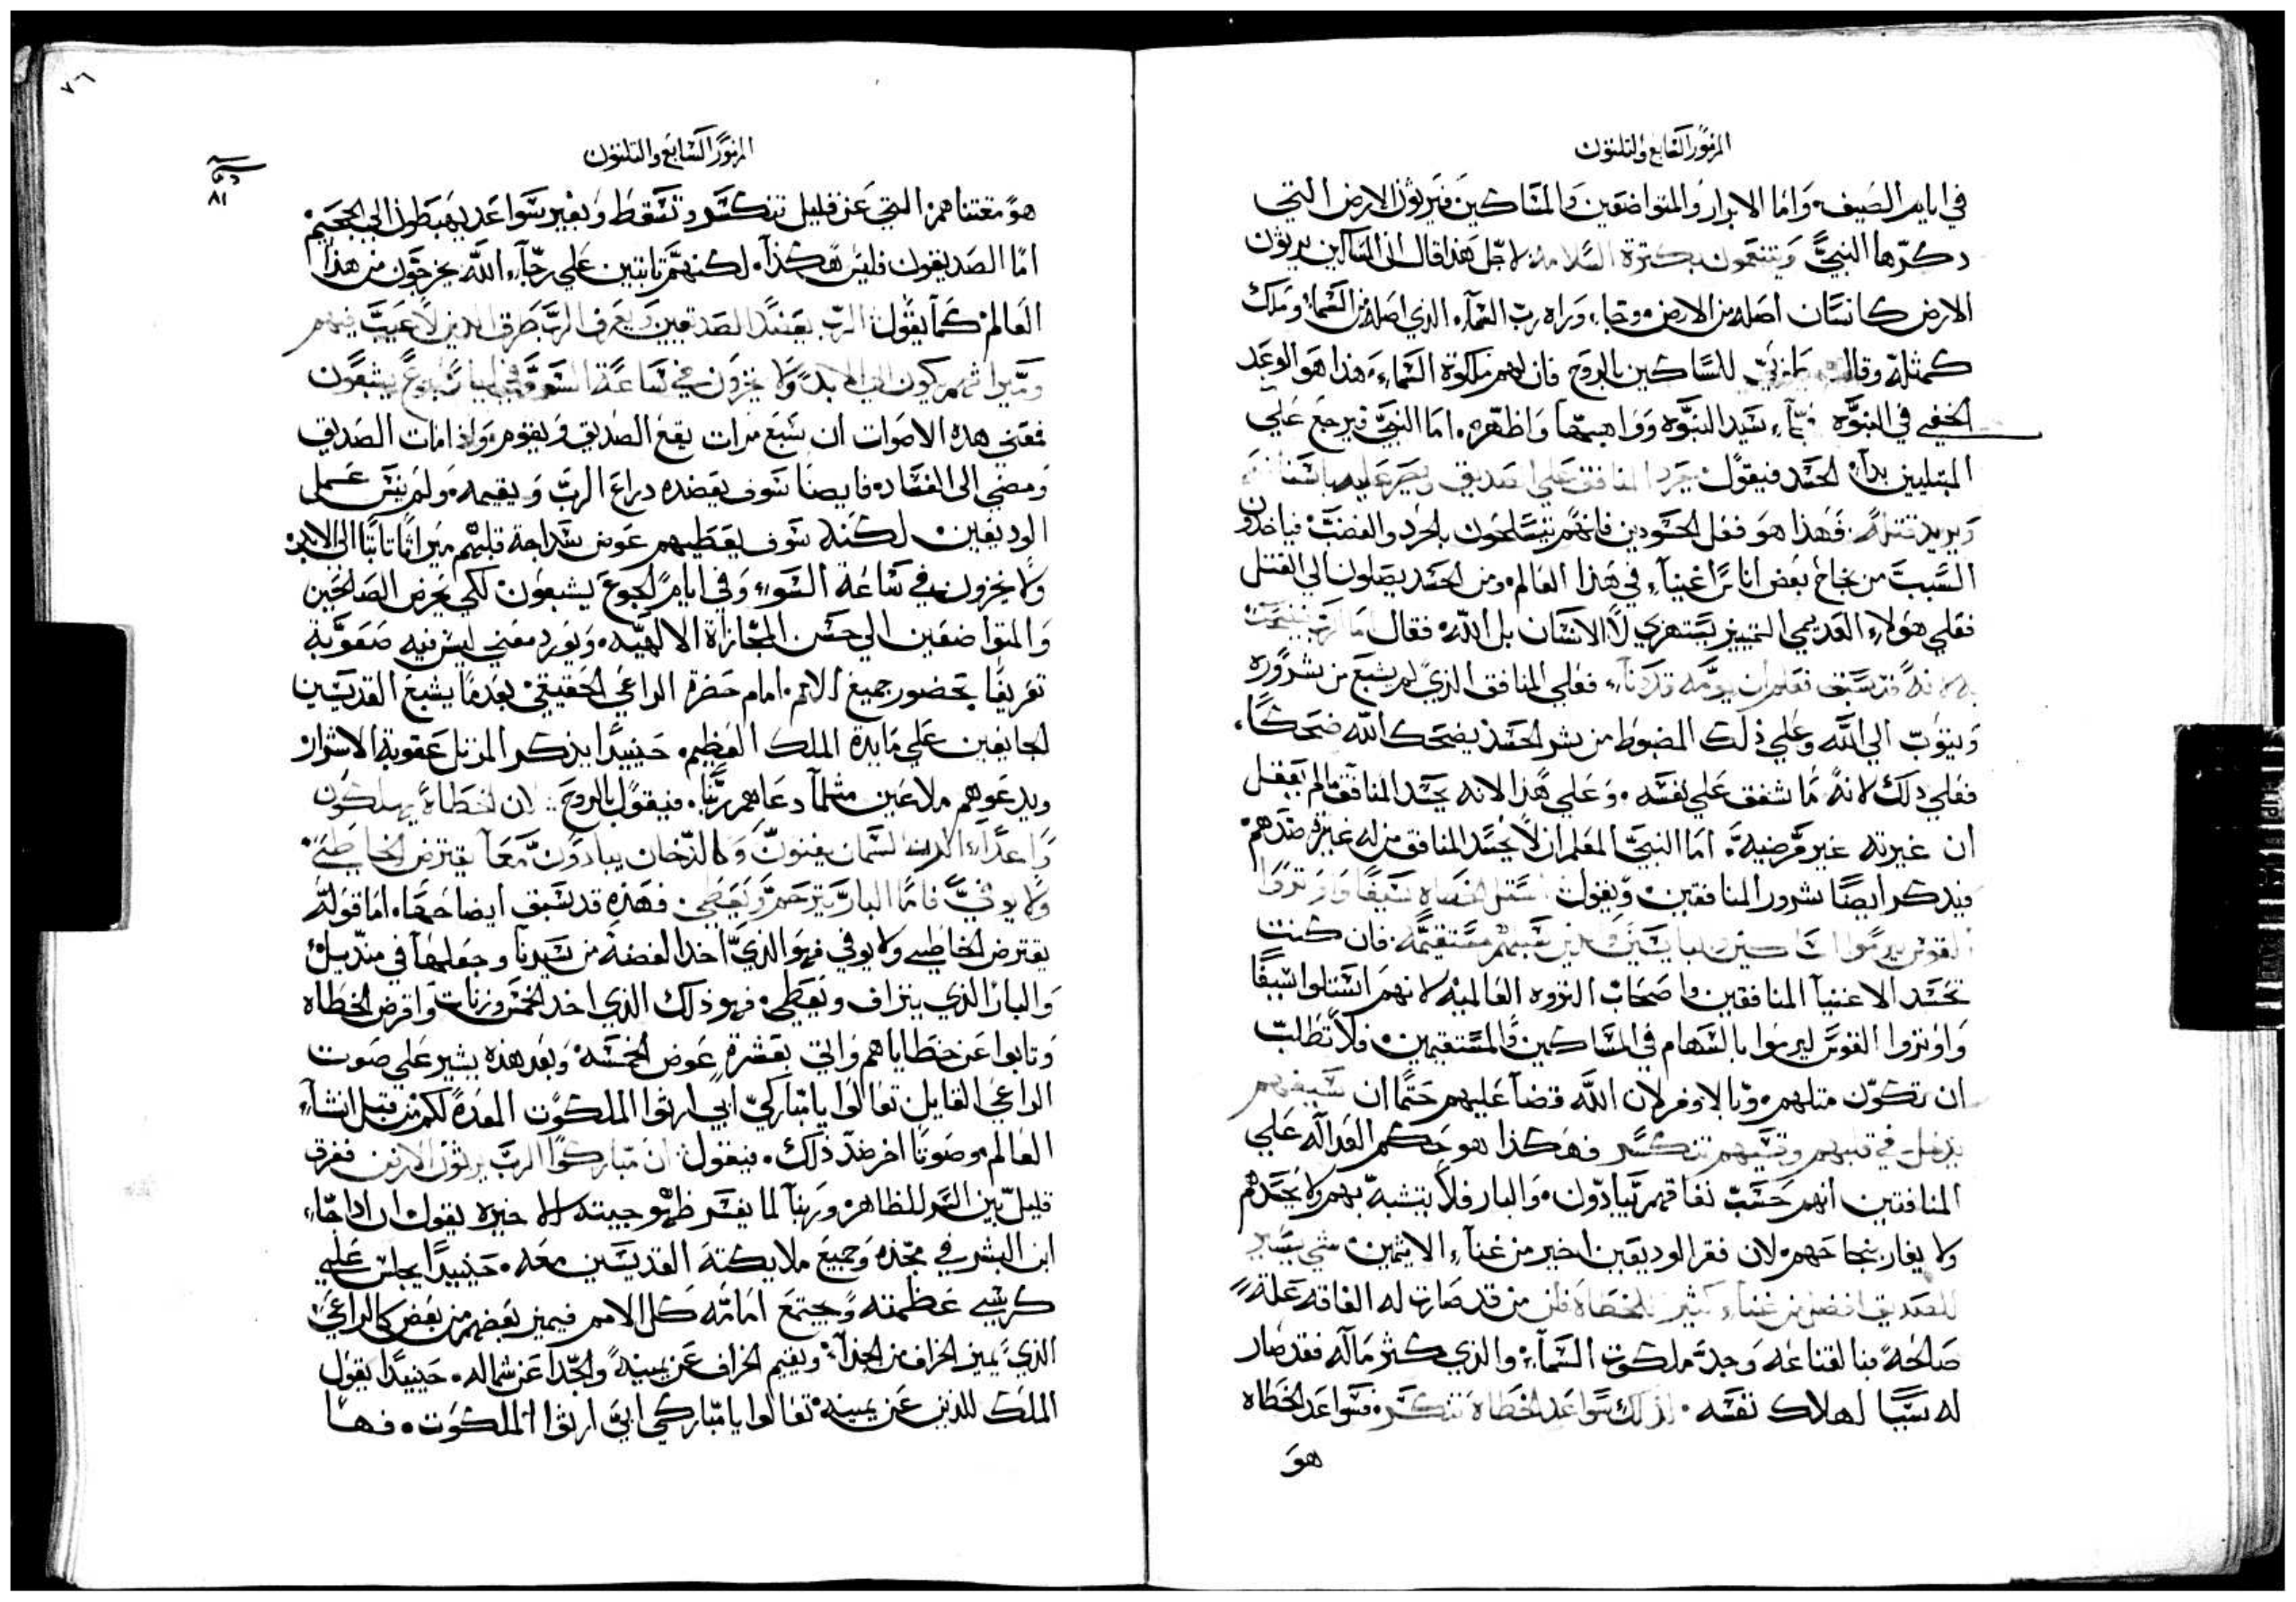 المزمور السابع والثلثون
في ايام الصيف. واما الابرار والمتواضعين والمساكين فيرثون الارض التي
دكرها النبي ويتنعمون بكثرة السلامة لاجل هذا قال ان الساكين يرثون
الارض كانسان اصله من الارض وجاء وراه رب السماء. الذي اصله من السماء وملك
كمثله وقال للساكين بالروح فان لهم ملكوة السماء، هذا هو الوعد
الخفي في النبوه سيد النبوه وواهبها واظهره. اما النبي فيرجع علي
المبتليين بداء الحسد فيقول يحرد المنافق علي الصديق ويصر عليه باسنانه
ويريد قتله. فهذا هو فعل الحسودين فانهم يتسلحون بالحرد والغضب فياخدون
السبب من نجاح بعض اناس اغنياء في هذا العالم ومن الحسد يصلون الي القتل
فعلي هولاء العديمي التمييز يستهزي لا الانسان بل الله فقال اما الرب فيضحك
به لانه قد سبق فعلم ان يومه قد دنا، فعلي المنافق الذي لم يشبع من شروره
ويتوب الي الله وعلي ذلك المضبوط من شر الحسد يضحك الله ضحكا،
فعلي دلك لانه ما شفق علي نفسه. وعلي هذا لانه يحسد المنافق لم يعقل
ان غيرته غير مرضية. اما النبي المعلم ان لا يحسد المنافق من له غيرة ضدهم
فيدكر ايضا شرور المنافقين ويقول استل الخطاه سيفا واوتروا
القوس ليرموا المساكين والبايسين والذين قلبهم مستقيمه. فان كنت
تحسد الاغنيا المنافقين واصحاب الثروه العالميه لانهم استلوا سيفا
واوتروا القوس ليرموا بالسهام في المساكين والمستقيمين فلا تطلب
ان تكون متلهم وبالاوفر لان الله قضا عليهم حتما ان سيفهم
يدخل في قلبهم وقسيهم تنكسر فهكذا هو حكم العداله علي
المنافقين انهم حسب نفاقهم يبادون. والبار فلا يتشبه بهم ولا يحسدهم
ولا يغار بنجاحهم لان فقر الوديعين اخير من غناء الاثمين شي يسير
للصديق افضل من غناء كثير للخطاة فان من قد صارت له الفاقه علة
صالحة فبالقناعه وجد ملكوت السماء والذي كثر ماله فقد صار
له سببا لهلاك نفسه. لذلك سواعد الخطاة تنكسر. فسواعد الخطاه
هو
٧٦
٨١
المزمور السابع والثلثون
هو مقتناهم التي عن قليل تنكسر وتسقط وبغير سواعد يهبطون الي الجحيم
اما الصديقون فليس هكذا. لكنهم تابتين علي رجاء الله يخرجون من هذا
العالم كما يقول الرب يعضد الصديقين ويعرف الرب طرق الذين لا عيب فيهم
وميراثهم يكون الي الابد ولا يخزون في ساعة السوء وفي ايام الجوع يشبعون
فمعني هده الاصوات ان سبع مرات يقع الصديق ويقوم واذا مات الصديق
ومضي الى الفساد. فايضا سوف يعضده دراع الرب ويقيمه ولم ينس عمل
الوديعين لكنه سوف يعطيهم عوض سداجة قلبهم ميراثا تابتا الي الابد
ولا يخزون في ساعة السوء وفي ايام الجوع يشبعون لكي يعرض الصالحين
والمتواضعين الي حسن المجازاة الالهيه. ويورد معني ليس فيه صعوبة
تعريفا بحضور جميع الامم امام حضرة الراعي الحقيقي بعدما يشبع القديسين
الجايعين علي مايدة الملك العظيم. حينيدا يذكر المرتل عقوبة الاشرار
ويدعوهم ملاعين مثلما دعاهم ربنا. فيقول بالروح. لان الخطاة يهلكون
واعداء الرب يفنون وكالدخان يبادون معا يقترض الخاطي
ولا يوفي فاما البار يترحم ويعطي. فهذه قد سبق ايضاحها. اما قوله
يقترض الخاطي ولا يوفي فهو الذي اخذ الفضة من سيدنا وجعلها في منديل
والبار الذي يتراف ويعطي. فهو ذلك الذي اخد الخمس وزنات واقرض الخطاه
وتابوا عن خطاياهم واتي بعشرة عوض الخمسه وبعد هذه يشير علي صوت
الراعي القايل تعالوا يا مباركي ابي ارثوا الملكوت المعدة لكم من قبل انشاء
العالم وصوتا اخر ضد ذلك. فيقول ان مباركوا الرب يرثون الارض ففرق
قليل بين السر للظاهر وربنا لما يفسر ظهور جيته الاخيره يقول ان اذا جاء
ابن البشر في مجده وجميع ملايكته القديسين معه. حينيدا يجلس علي
كرسي عظمته ويجتمع امامه كل الامم فيميز بعضهم من بعض كالراعي
الذي يميز الخراف من الجداء ويقيم الخراف عن يمينه والجدا عن شماله. حينيدا يقول
الملك للذين عن يمينه تعالوا يا مباركي ابي ارثوا الملكوت. فها